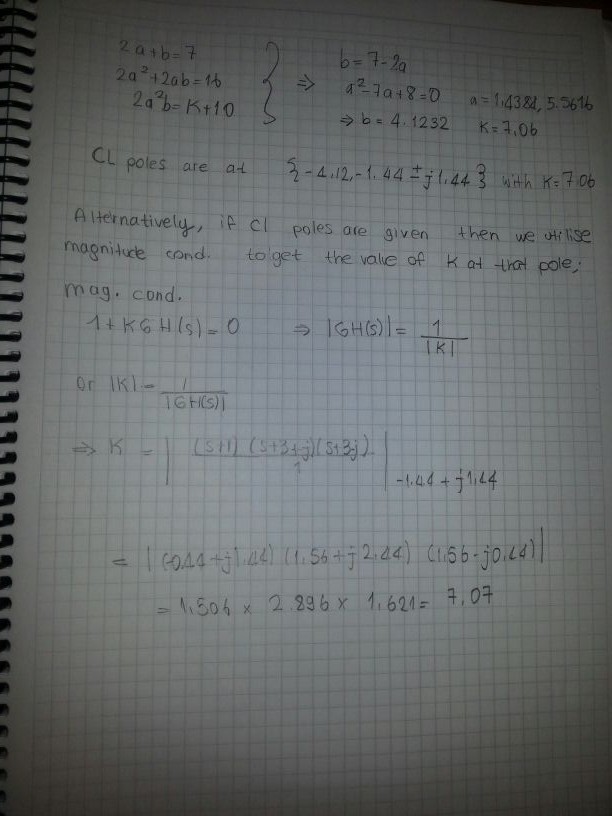 2a+b=7
2a²+2ab=16
2a²b=K+10
⇒ b=7-2a
a²-7a+8=0 a=1.4384, 5.5616
⇒ b=4.1232 K=7.06
CL poles are at {-4.12,-1.44 ± j1.44} with K=7.06
Alternatively, if Cl poles are given then we utilise
magnitude cond. to get the value of K at that pole;
mag. cond.
1+KGH(s)=0 ⇒ |GH(s)|= 1/|K|
or |K|= 1/|GH(s)|
⇒ K = |(s+1)(s+3+j)(s+3-j)/1| -1.44+j1.44
= |(-0.44+j1.44)(1.56+j2.44)(1.56-j0.44)|
=1.506 x 2.896 x 1.621= 7.07